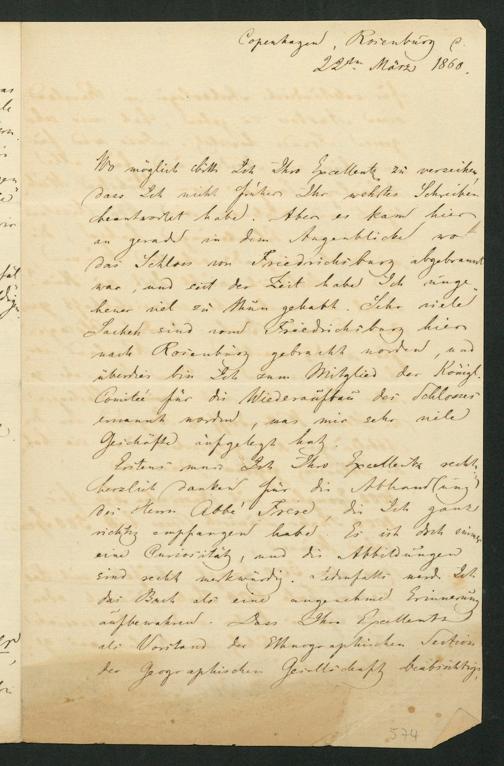 Copenhagen, Rosenburg
22ten März 1860.
Wo möglich bitte Ich Ihro Excellentz zu verzeihen,
dass Ich nicht früher Ihr wehrtes Schreiben
beantwortet habe. Aber es kam hier
an gerade in dem Augenblicke wo
das Schloss von Friedrichsburg abgebrannt
war, und seit der Zeit habe Ich unge-
heuer viel zu thun gehabt. Sehr viele
Sachen sind von Friedrichsburg hier
nach Rosenburg gebracht worden, und
überdies bin Ich zum Mitglied der Königl.
Comitée für die Wiederaufbau des Schlosses
ernannt worden, was mir sehr viele
Geschäfte aufgelegt hat.
Erstens muss Ich Ihro Excellentz recht
herzlich danken für die Abhandlung
des Herrn Abbé Frese, die Ich ganz
richtig empfangen habe. Es ist doch immer
eine Curiosität, und die Abbildungen
sind recht merkwürdig. Jedenfalls werde Ich
das Buch als eine angenehme Erinnerung
aufbewahren. Dass Ihro Excellentz
als Vorstand der Ethnographischen Section
der Geographischen Gesellschaft beabsichtigt,
574